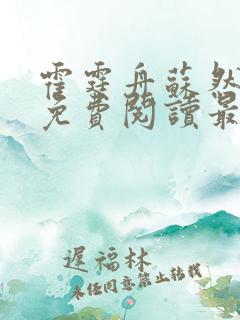 霍霆舟蘇
免費閱讀最
遲福林
未经同意禁止转载